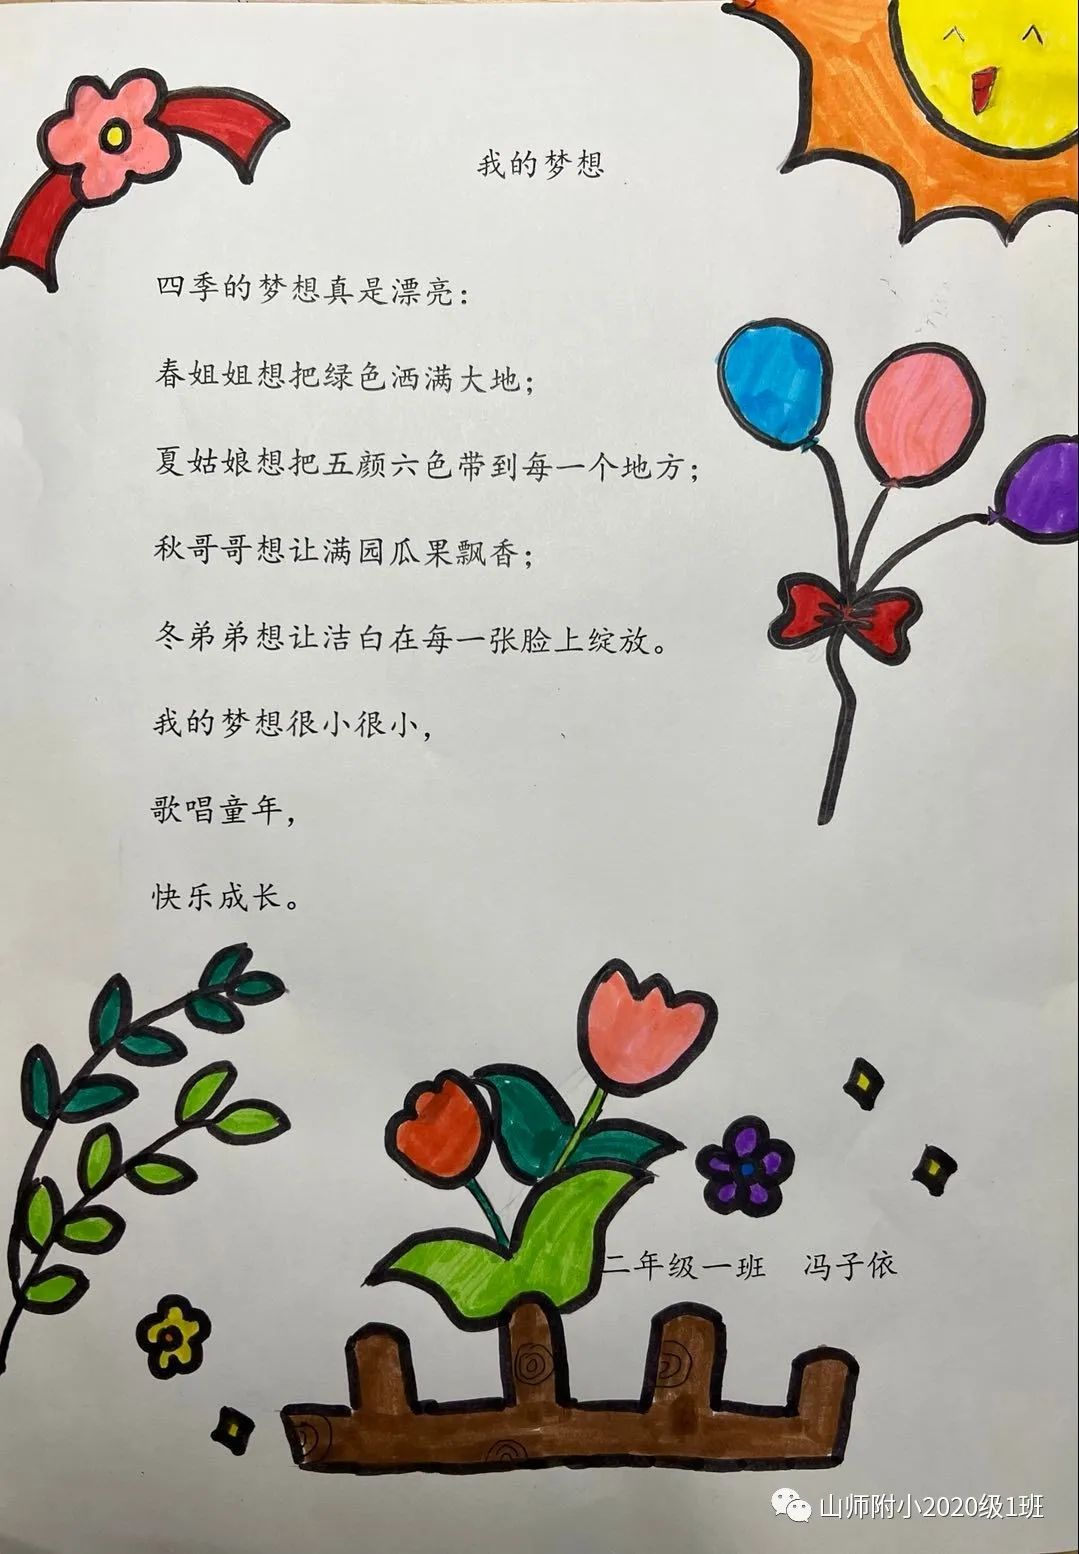 我的梦想
四季的梦想真是漂亮：
春姐姐想把绿色洒满大地；
夏姑娘想把五颜六色带到每一个地方；
秋哥哥想让满园瓜果飘香；
冬弟弟想让洁白在每一张脸上绽放。
我的梦想很小很小，
歌唱童年，
快乐成长。
二年级一班 冯子依
山师附小2020级1班